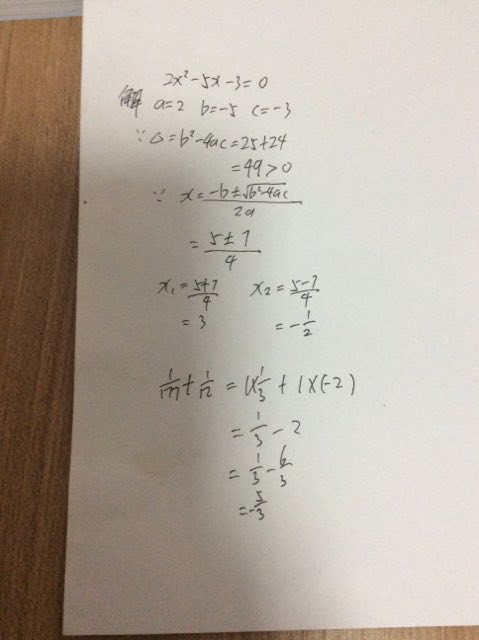 2x²-5x-3=0
解 a=2 b=-5 c=-3
∵Δ=b²-4ac=25+24
=49>0
∵ x=\frac{-b±\sqrt{b²-4ac}}{2a}
=\frac{5±7}{4}
x₁=\frac{5+7}{4} x₂=\frac{5-7}{4}
=3 =-\frac{1}{2}
\frac{1}{m}+\frac{1}{n}=1×\frac{1}{3}+1×(-2)
=\frac{1}{3}-2
=\frac{1}{3}-\frac{6}{3}
=-\frac{5}{3}